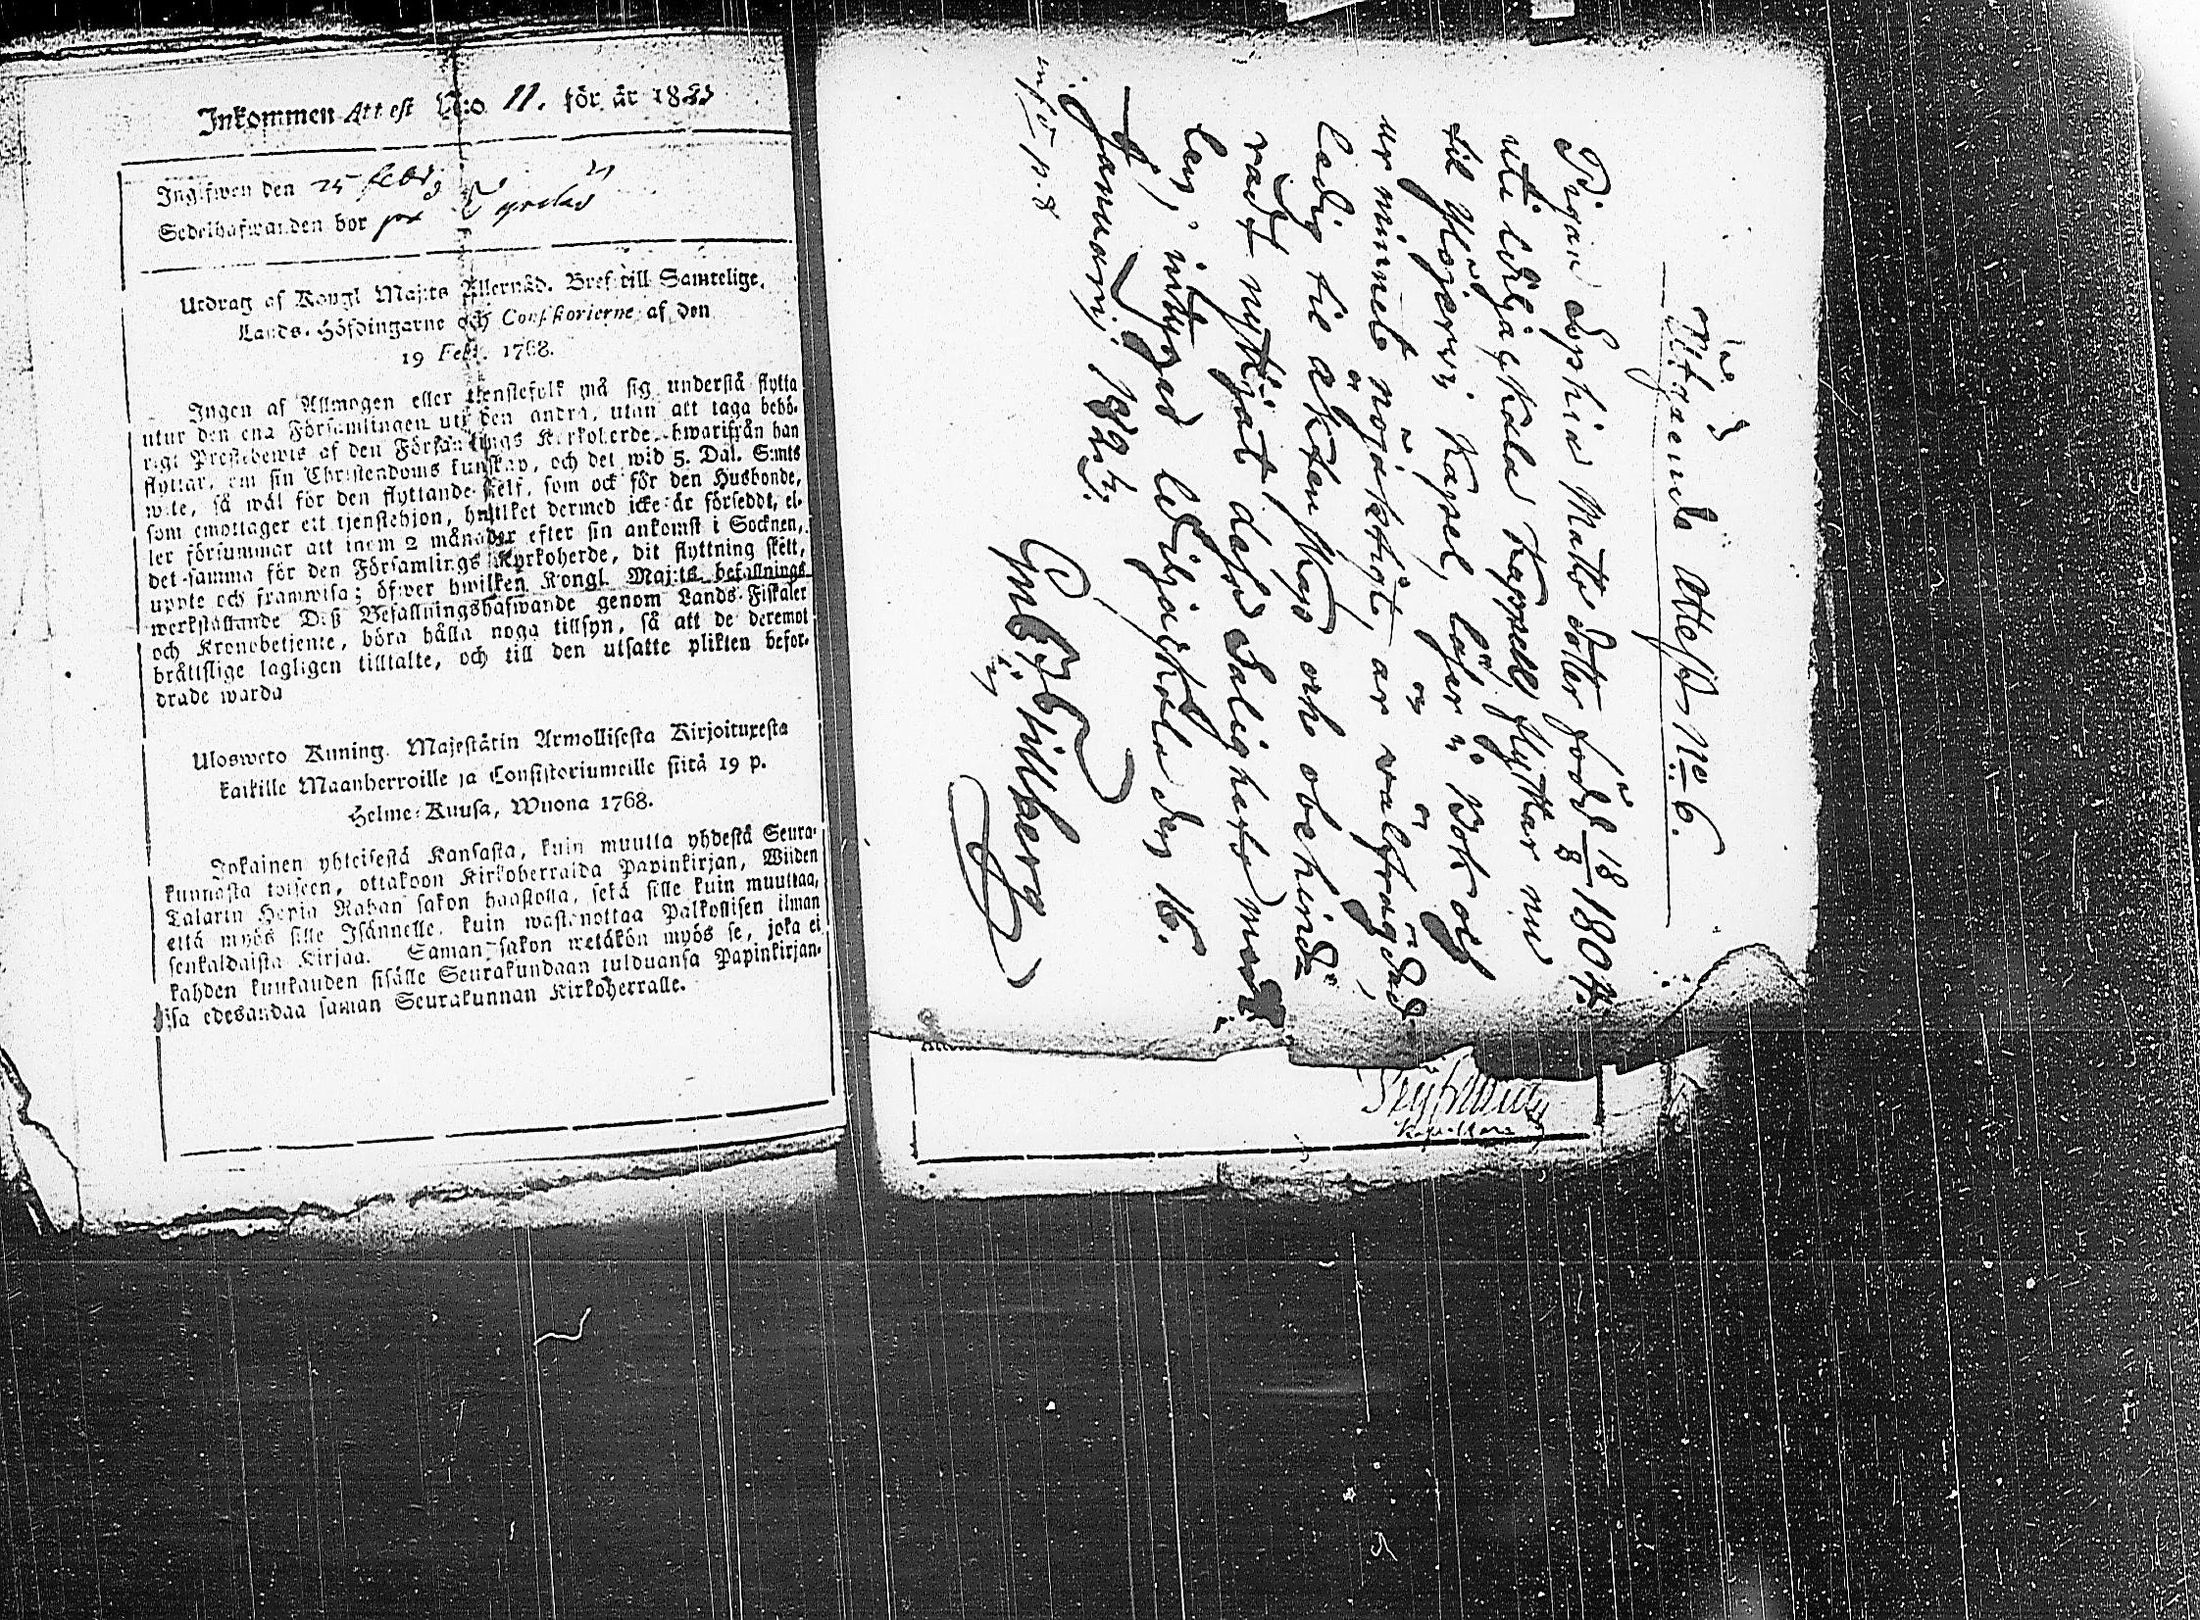 Inkommen Attest N:o 11. för år 1825
Ingifwen den 25 febr
Sedelhafwanden bor på
Utdrag af Kongl Maj:ts Allernåd. Bref till Samtelige
Lands-Höfdingarne och Consistorierne af den
19 Febr. 1768.
Ingen af Allmogen eller tjenstefolk må sig understå flytta
utur den ena Församlingen uti den andra, utan att taga behö-
rigt Prestebewis af den Församlings Kyrkoherde, hwarifrån han
flyttar, om sin Christendoms kunskap, och det wid 5. Dal. S:mts
wite, så wäl för den flyttande self, som ock för den Husbonde,
som emottager ett tjenstehjon, hwilket dermed icke är försedt, el-
ler försummar att inom 2 månader efter sin ankomst i Socknen,
det samma för den Församlings Kyrkoherde, dit flyttning skett,
uppte och framwisa; öfwer hwilken Kongl. Maj:ts befallnings
werkställande Deß Befallningshafwande genom Lands-Fiskaler
och Kronobetjente, böra hålla noga tillsyn, så att de deremot
bråttslige lagligen tilltalte, och till den utsatte plikten befor-
drade warda
Ulosweto Kuning. Majestätin Armollisesta Kirjoituxesta
kaikille Maanherroille ja Consistoriumeille siitä 19 p.
Helme-Kuusa, Wuona 1768.
Jokainen yhteisestä Kansasta, kuin muutta yhdestä Seura-
kunnasta toiseen, ottakoon Kirkoherralda Papinkirjan, Wiiden
Talarin Hopia Rahan sakon haastolla, sekä sille kuin muuttaa,
että myös sille Isännelle, kuin wastanottaa Palkollisen ilman
senkaldaista Kirjaa. Saman sakon wetäkön myös se, joka ei
kahden kuukauden sisälle Seurakundaan tulduansa Papinkirjan-
sa edesandaa saman Seurakunnan Kirkoherralle.
Utgående Attest No 6.
Pigan Sophia Matts dotter född 18/8 1804.
uti Kapell, flyttar nu
til Kapel, läser i Bok och
ur minnet nöjaktigt, är wälfrägdad,
ledig til äktenskap och obehindrad
nyttjat dess Salighets med
len, intygad den 16.
Januarii 1825.
Gust. Tillberg
inf. p. 8